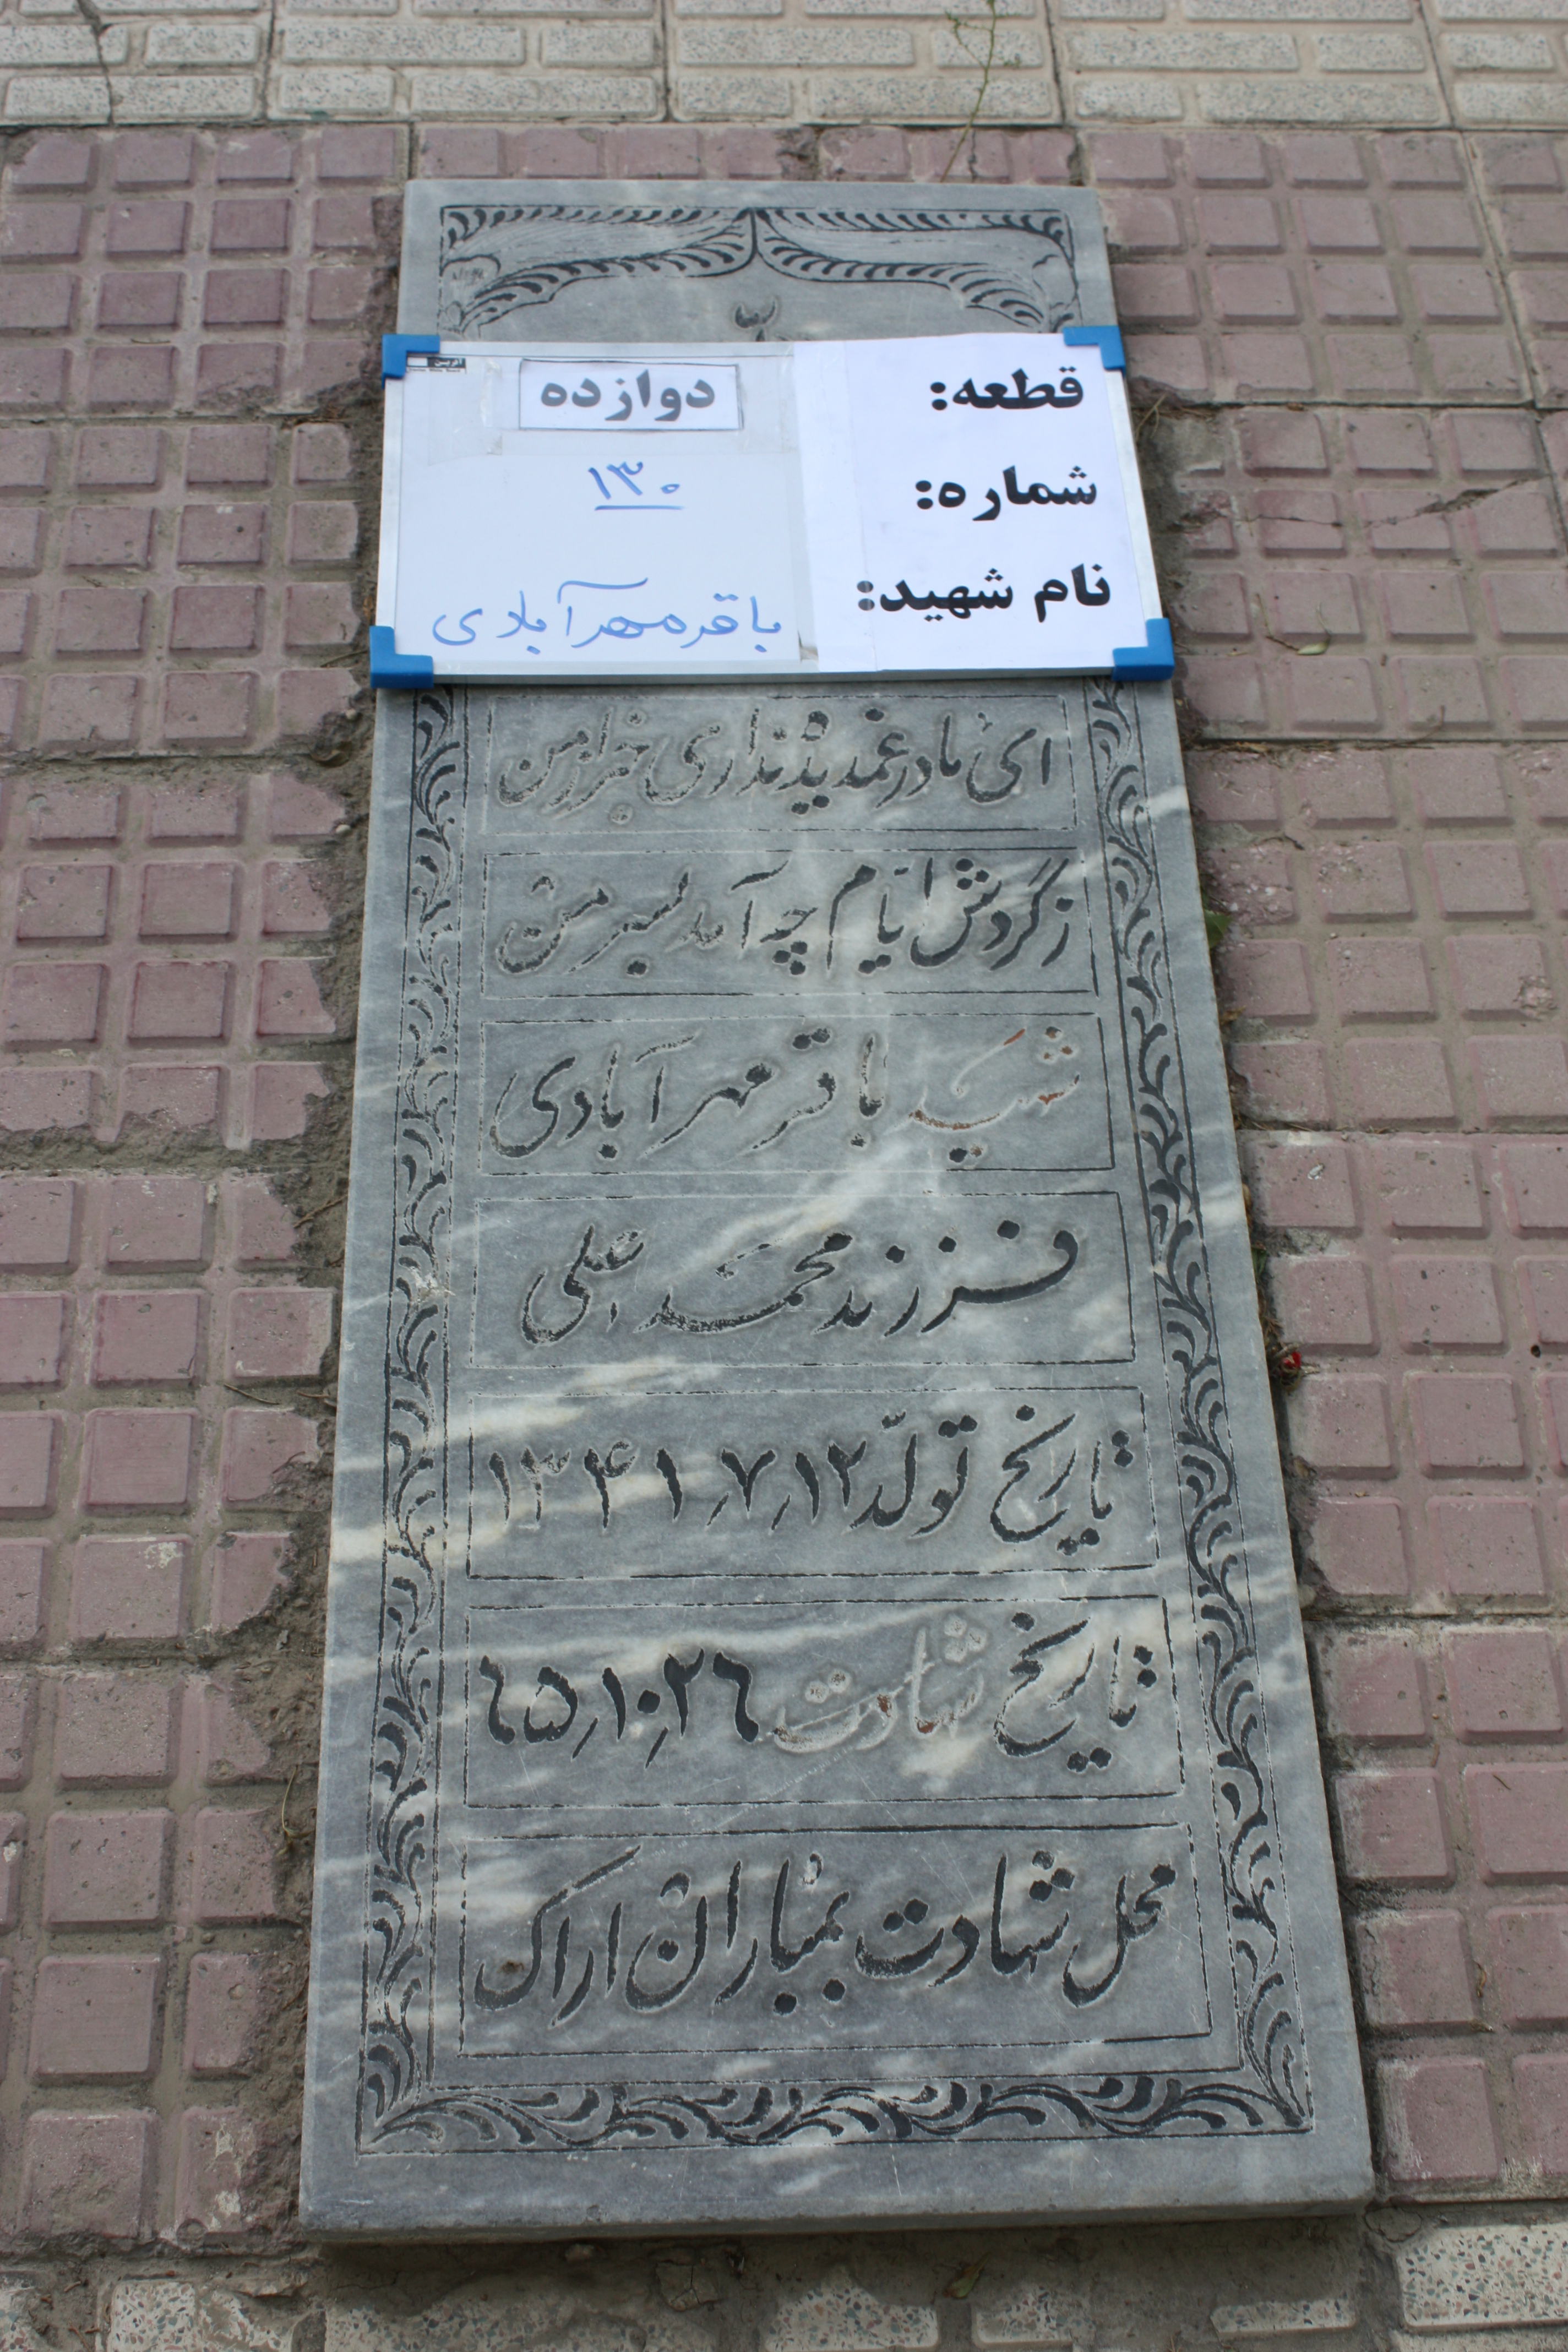 قطعه: دوازده
شماره: ۱۳۰
نام شهید: باقر مهرآبادی
ای مادر غمدیده نداری خبر از من
ز گردش ایام چه آمد بسر من
شهید باقر مهرآبادی
فرزند محمد علی
تاریخ تولد ۱۲٫۷٫۱۳۴۱
تاریخ شهادت ۲۶٫۱۰٫۶۵
محل شهادت بمباران اراک